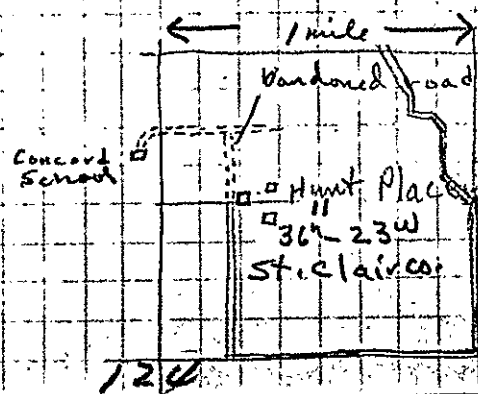 1 mile
abandoned road
Concord
School
Hunt Place
11
36N - 23W
St. Clair Co.
124